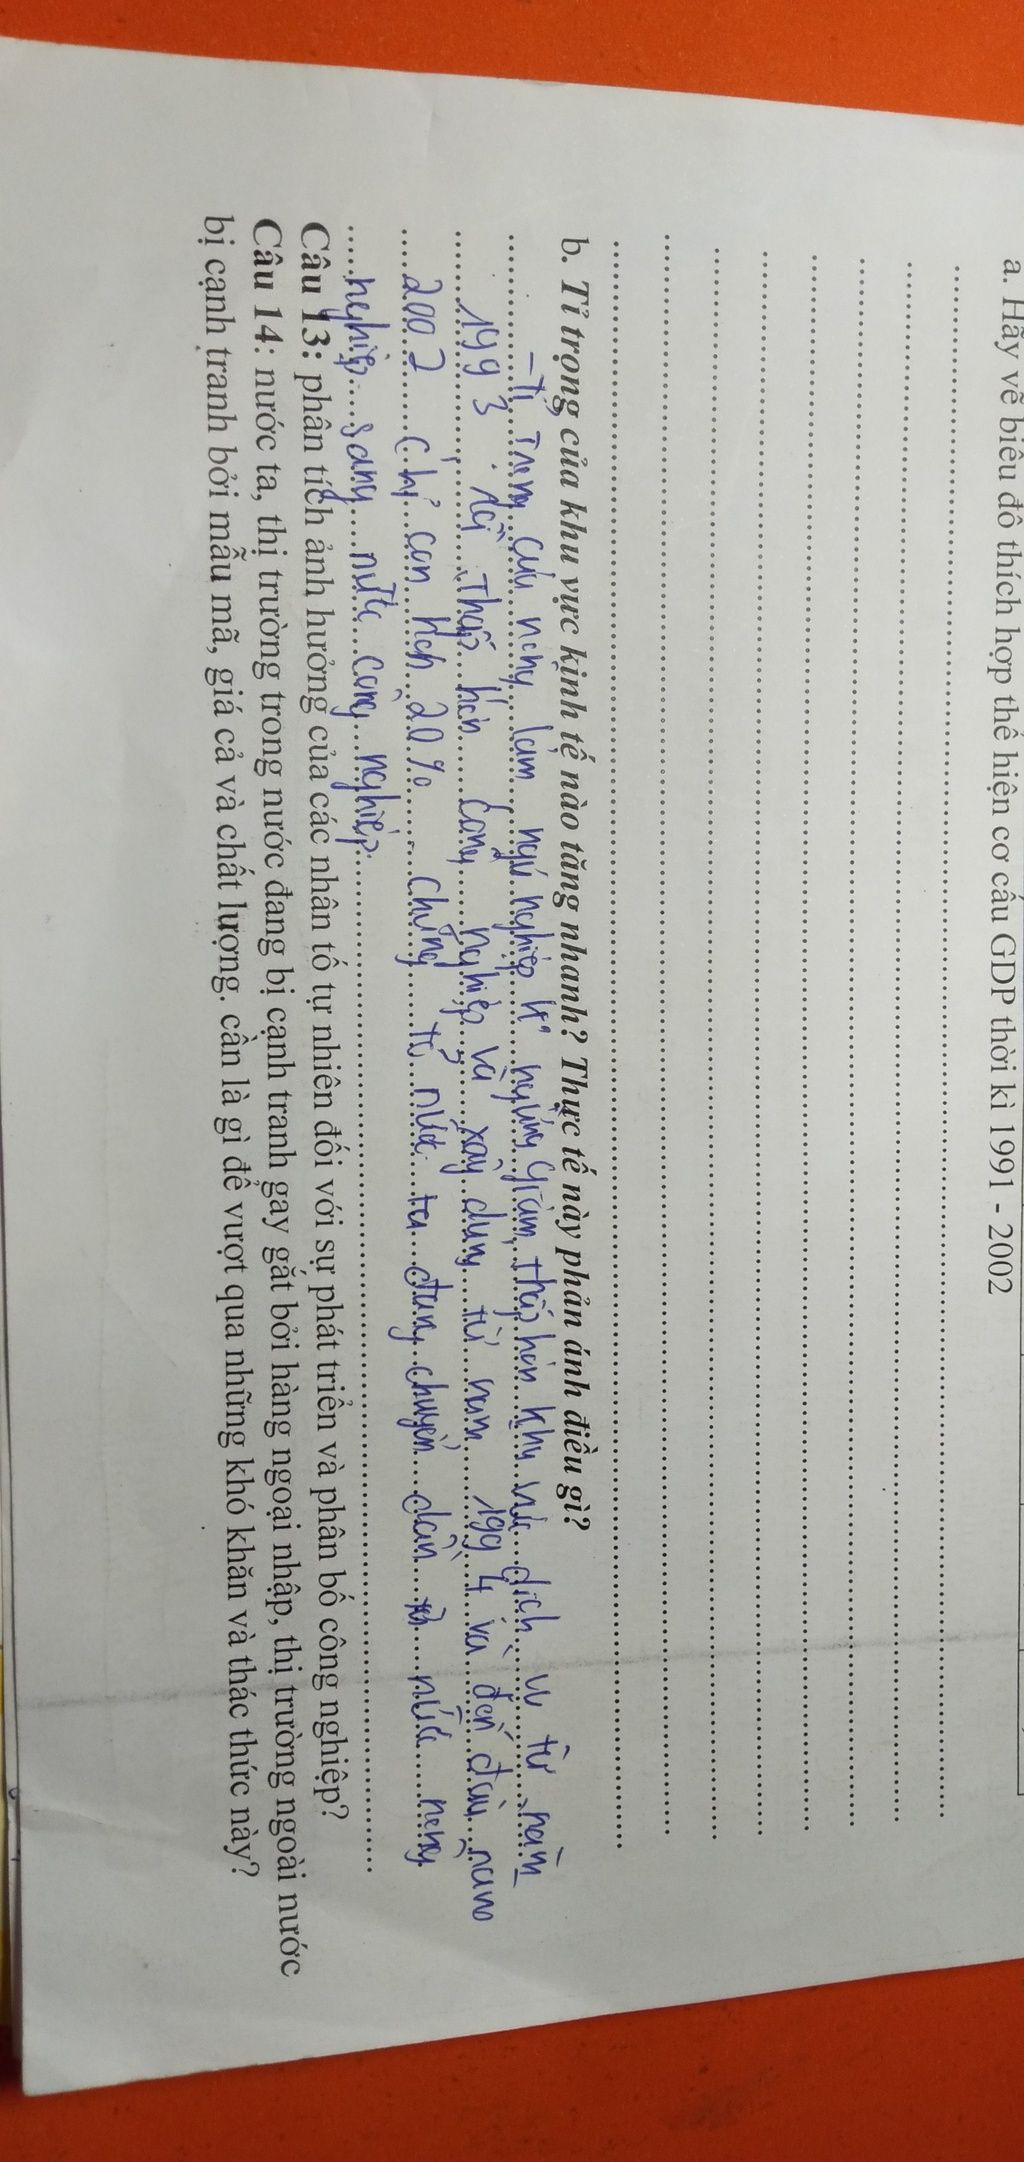 a. Hãy vẽ biểu đồ thích hợp thể hiện cơ cấu GDP thời kì 1991 - 2002
b. Tỉ trọng của khu vực kinh tế nào tăng nhanh? Thực tế này phản ánh điều gì?
- Tỉ trọng của nông, lâm, ngư nghiệp k° ngừng giảm, thấp hơn khu vực dịch vụ từ năm
1993, thấp hơn công nghiệp và xây dựng từ năm 1994 và đến đầu năm
2002 chỉ còn hơn 20%. chứng tỏ nước ta đang chuyển dần từ nước nông
nghiệp sang nước công nghiệp.
Câu 13: phân tích ảnh hưởng của các nhân tố tự nhiên đối với sự phát triển và phân bố công nghiệp?
Câu 14: nước ta, thị trường trong nước đang bị cạnh tranh gay gắt bởi hàng ngoại nhập, thị trường ngoài nước
bị cạnh tranh bởi mẫu mã, giá cả và chất lượng. cần là gì để vượt qua những khó khăn và thác thức này?